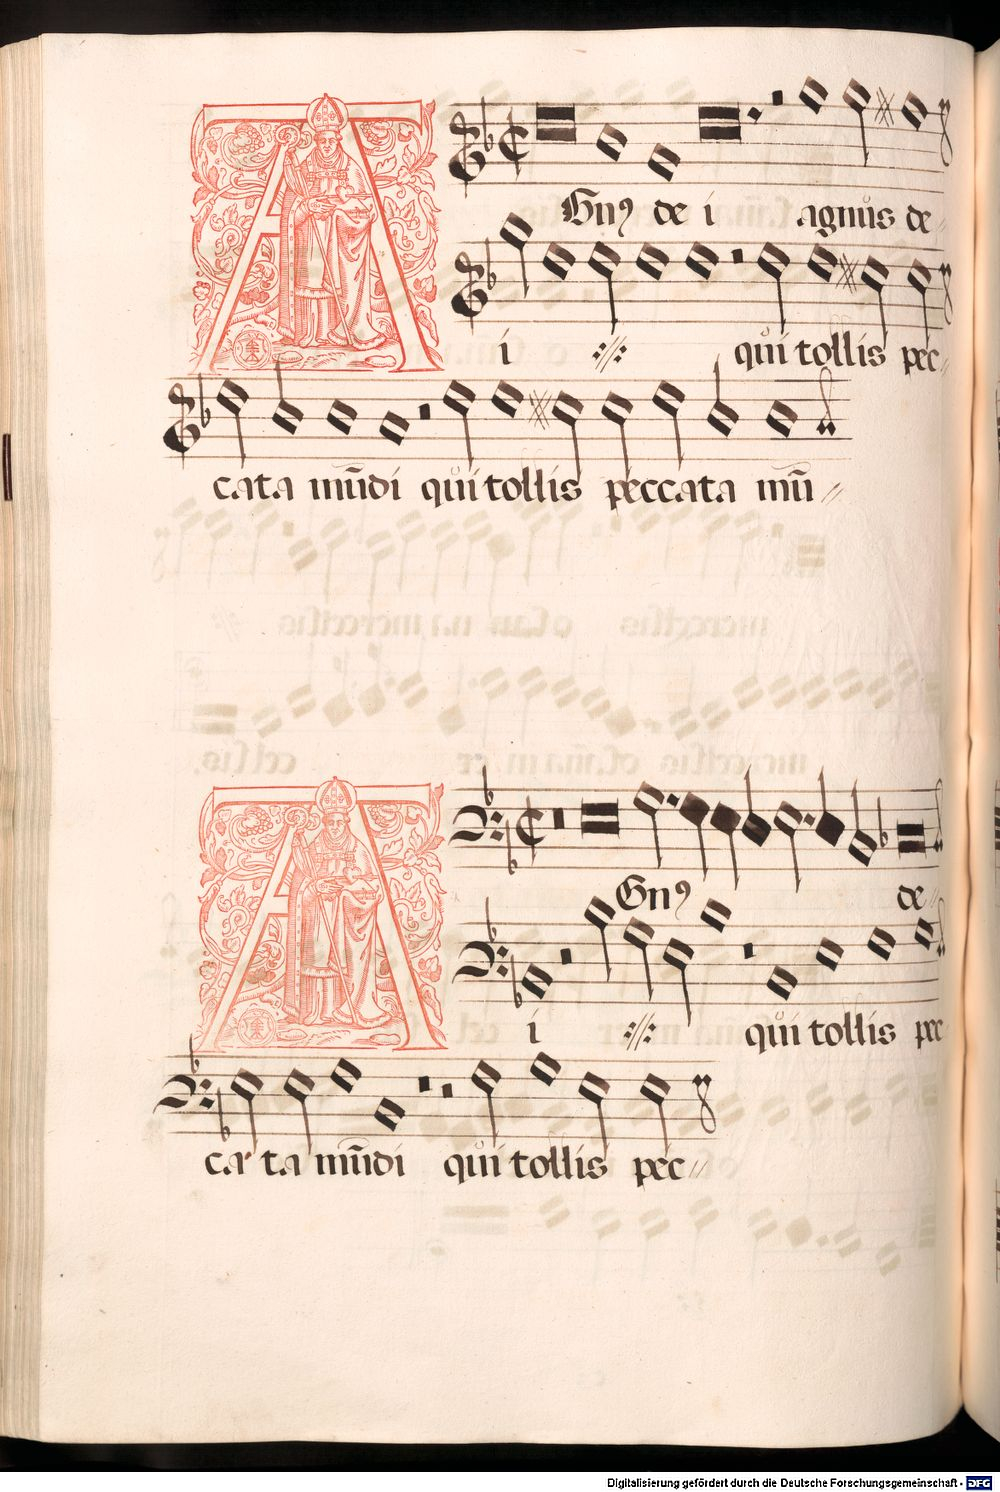 A Gnꝰ de i agnůs de
i ://: qůi tollis pec
cata mūdi qůi tollis peccata mū //
A Gnꝰ de //
i ://: qůi tollis pec
ca ta mūdi qůi tollis pec //
Digitalisierung gefördert durch die Deutsche Forschungsgemeinschaft - DFG